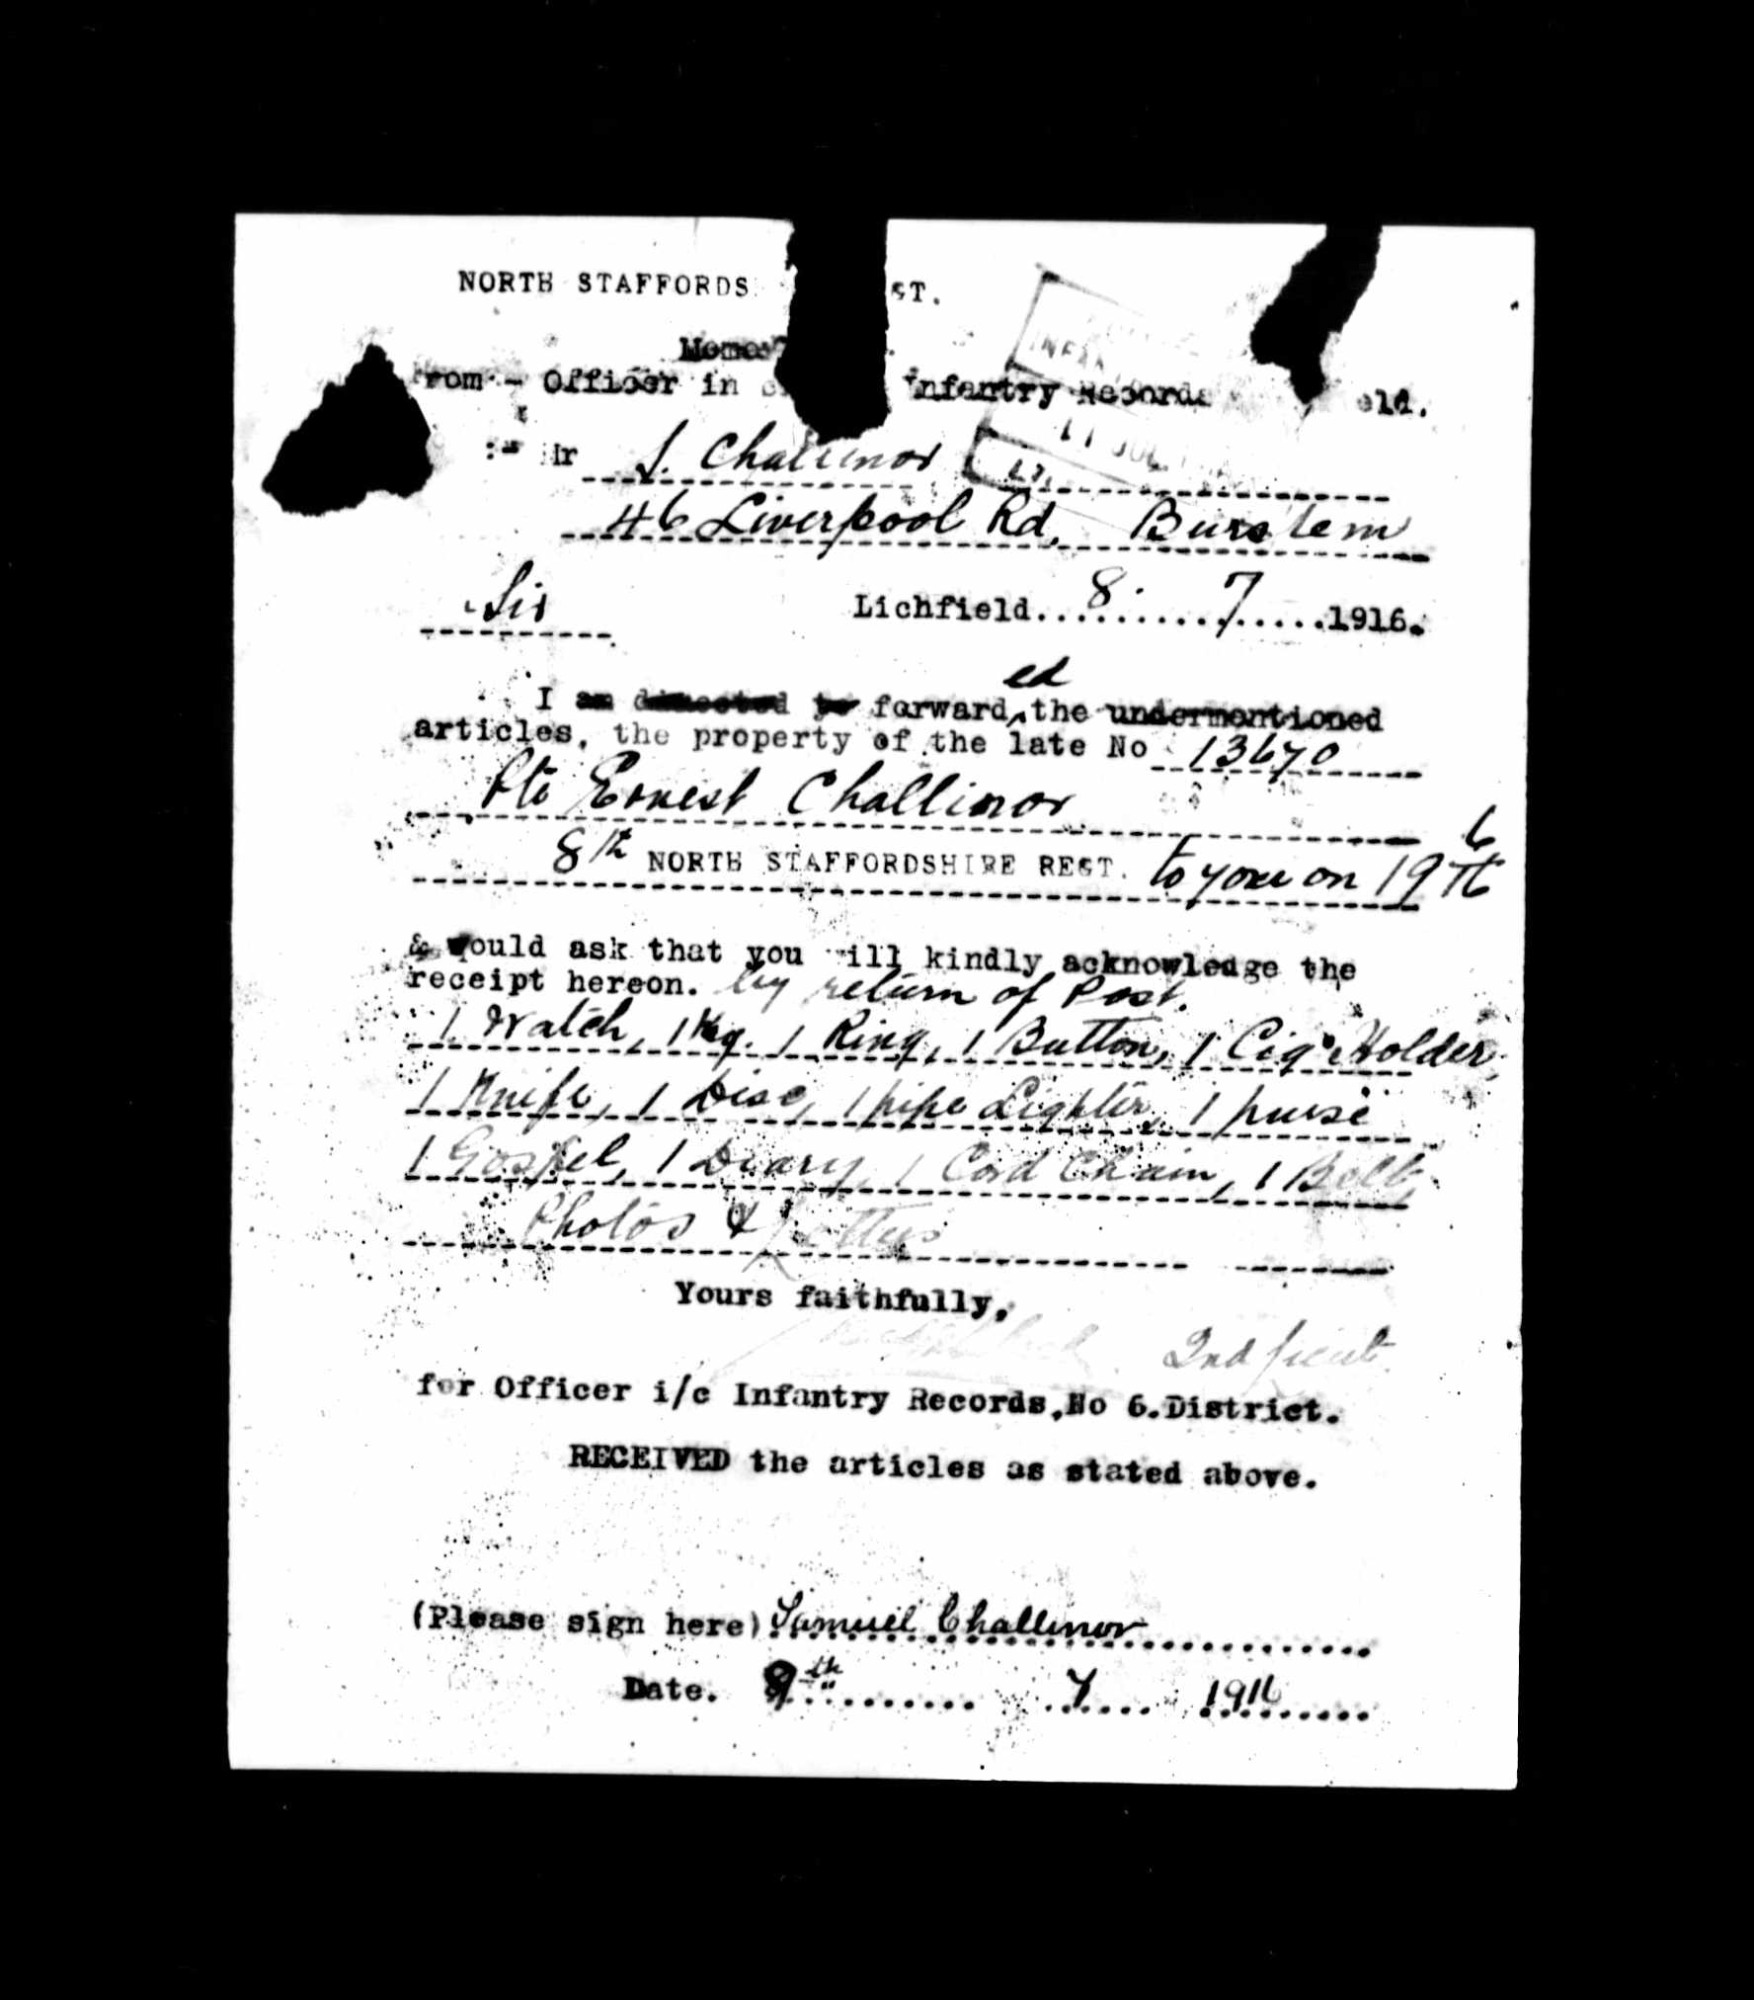 NORTH STAFFORDS ST.
Memo
rom - Officer in Infantry Records eld.
INFAN
11 JUL
:- Mr S. Challinor
46 Liverpool Rd, Burslem
Sir
Lichfield....8.....7.....1916.
I am directed to forwarded the undermentioned
articles, the property of the late No 13670
Pte Ernest Challinor
8th NORTH STAFFORDSHIRE REGT. to you on 19/6
& would ask that you ill kindly acknowledge the
receipt hereon. by return of Post.
1 Watch, 1 Key. 1 Ring, 1 Button, 1 Cig. Holder,
1 Knife, 1 Disc, 1 pipe Lighter, 1 purse
1 Gospel, 1 Diary, 1 Cord Chain, 1 Belt,
Photos & Letters
Yours faithfully,
2nd Lieut.
for Officer i/c Infantry Records, No 6. District.
RECEIVED the articles as stated above.
(Please sign here) Samuel Challinor
Date. 9th 7 1916